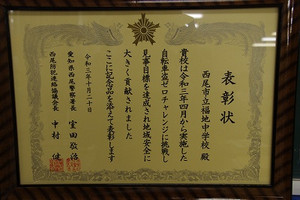 表彰状
西尾市立福地中学校 殿
貴校は令和三年四月から実施した
自転車盗ゼロチャレンジに挑戦し
見事目標を達成され地域安全に
大きく貢献されました
ここに記念品を添えて表彰します
令和三年十月二十日
愛知県西尾警察署長 室田敬治
西尾防犯連絡協議会長 中村 健